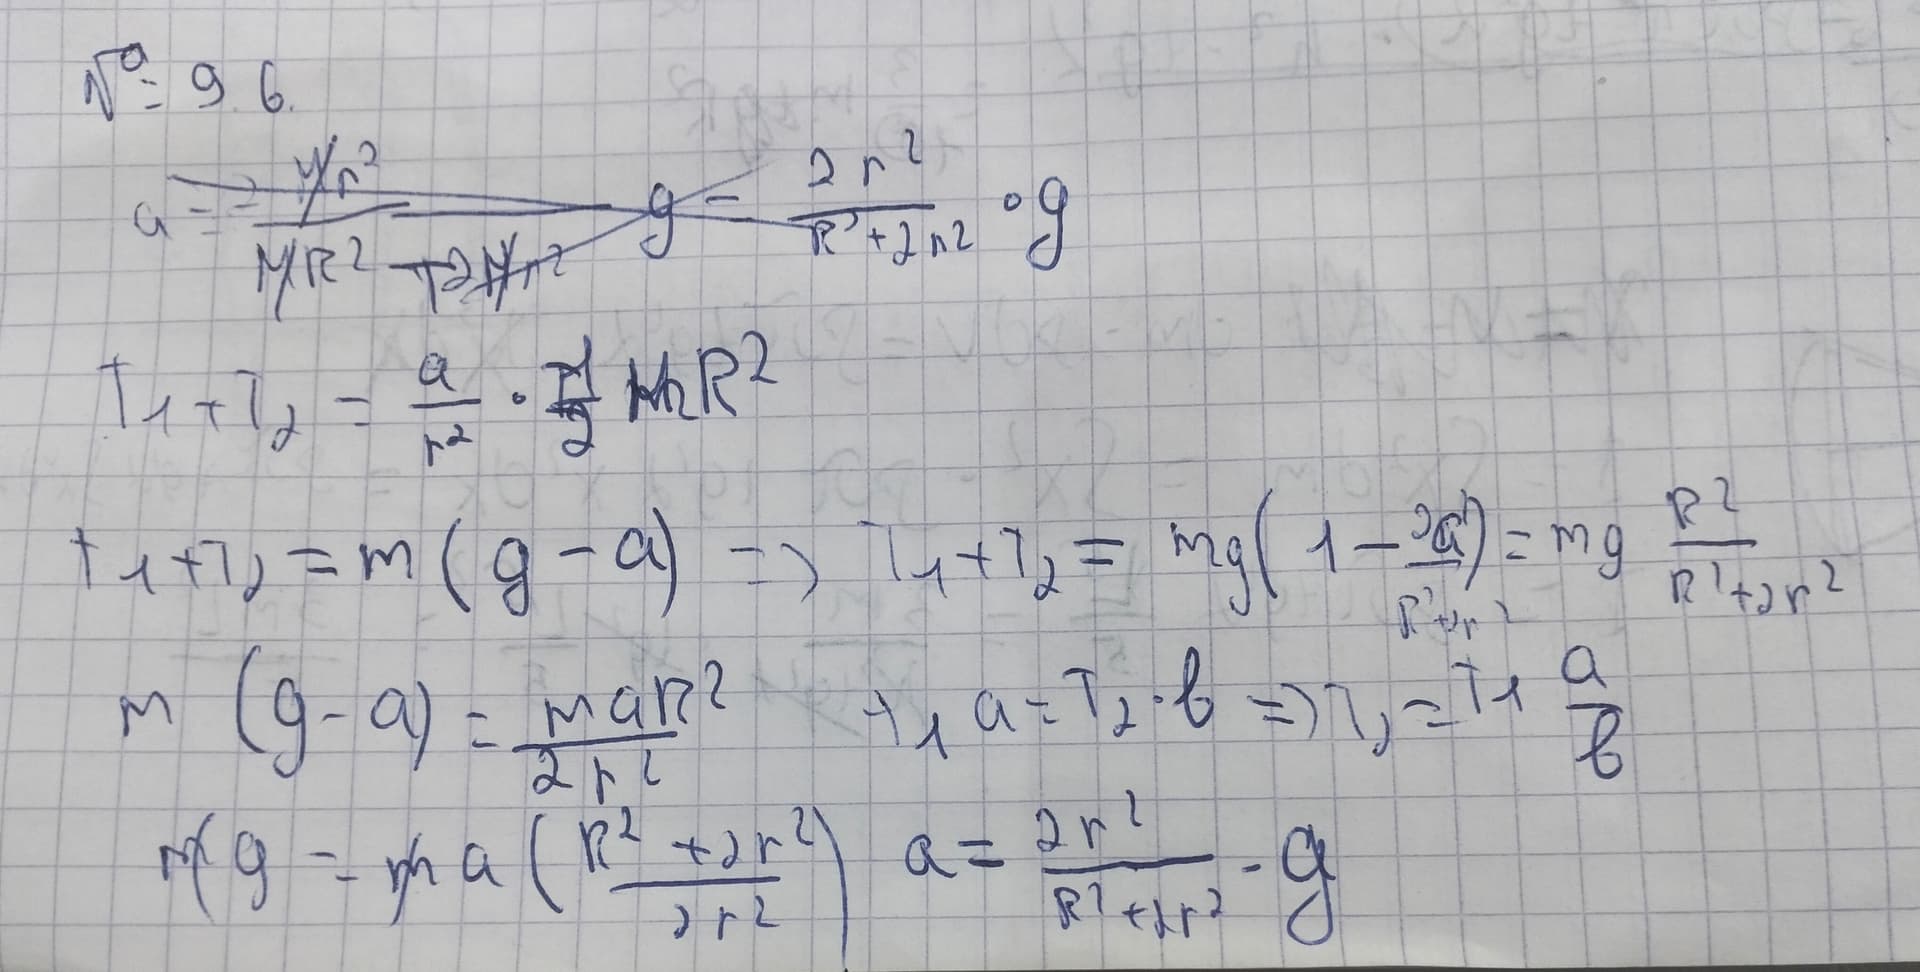 № 9.6.
a = 2 Mr² / MR² + 2Mr² g = 2r² / R²+2r² · g
T₁+T₂ = a/r² · 1/2 mR²
T₁+T₂ = m(g-a) => T₁+T₂ = mg(1 - 2r²/R²+2r²) = mg R²/R²+2r²
m(g-a) = maR²/2r² T₁a = T₂·b => T₂ = T₁ a/b
mg = ma(R²+2r²/2r²) a = 2r²/R²+2r² · g